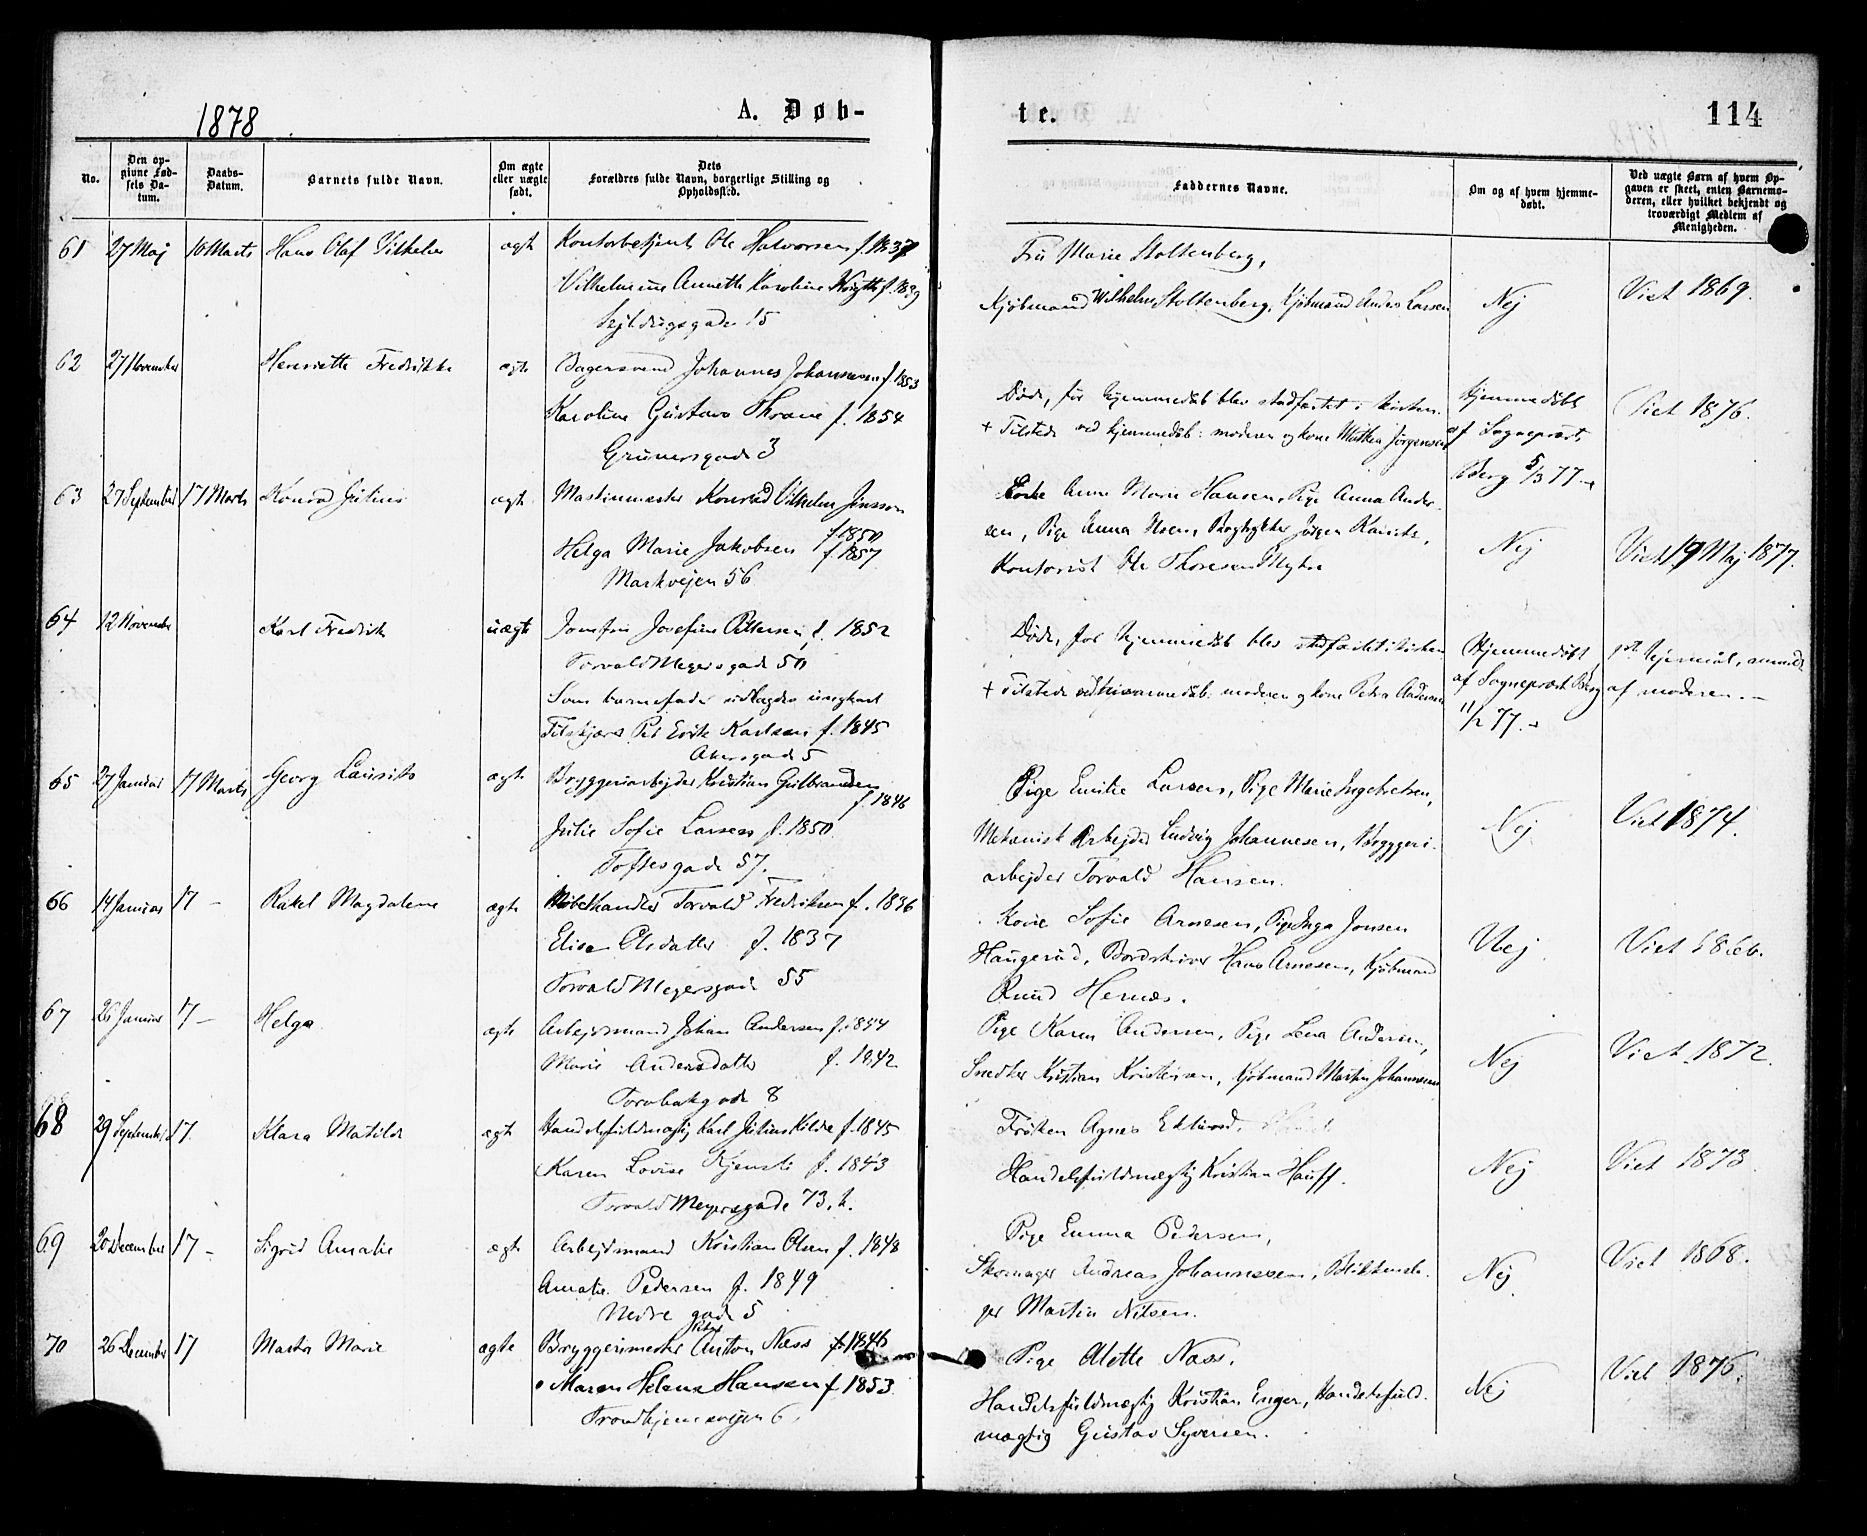 1878
A. Døb-
No.
Den op-
givne Fød-
sels Da-
tum.
Daabs-
Datum.
Barnets fulde Navn.
Om ægte
eller uægte
født.
Dets
Forældres fulde Navn, borgerlige Stilling og
Opholdssted.
61 27 Maj 10 Marts Hans Olaf Vilhelm ægte Kontorbetjent Ole Halvorsen f. 1837
Vilhelmine Annette Karoline f. 1839
15
62 27 November Henriette Fredrikke ægte Bagersvend Johannes Johannesen f. 1853
Karoline Gustava Thrane f. 1854
Grünersgade 3
63 27 September 17 Marts Konrad Julius ægte Maskinmester Konrad Vilhelm Jensson
f. 1850
Helga Marie Jakobsen f. 1857
Markvejen 56
64 12 November Karl Fredrik uægte Jomfru Josefine Pettersen f. 1852
Torvald Meyersgade 50
Som barnefader udlagdes ungkarl
Per Erik Karlsen f. 1845
Akersgade 5
65 27 Januar 17 Marts Georg Laurits ægte Bryggeriarbejder Kristian Gulbrandsen
f. 1846
Julie Sofie Larsen f. 1850
Toftesgade 57.
66 14 Januar 17 - Rakel Magdalene ægte Møbelhandler Torvald Fredriksen f. 1836
Elise Olsdatter f. 1837
Torvald Meyersgade 55
67 26 Januar 17 - Helga ægte Arbejdsmand Johan Andersen f. 1844
Marie Andersdatter f. 1842
8
68 29 September 17. Klara Matilde ægte Handelsfuldmægtig Karl Julius f. 1845
Karen Lovise f. 1843
Torvald Meyersgade 73, b.
69 20 December 17 - Sigrid Amalie ægte Arbejdsmand Kristian Olsen f. 1848
Amalie Pedersen f. 1849
Nedre gade 5
70 26 December 17 Marta Marie ægte Bryggerimester Anton Næss f. 1846
Maren Helene Hansen f. 1853.
Trondhjemsvejen 6.
te.
114
Faddernes Navne.
Om og af hvem hjemme-
døbt.
Ved uægte Børn af hvem Op-
gaven er skeet, enten Barnemo-
deren, eller hvilket bekjendt og
troværdigt Medlem af
Menigheden.
Fru Marie Stoltenberg,
Kjøbmand Wilhelm Stoltenberg, Kjøbmand Anders Larsen Nej Viet 1869.
Døde, før hjemmedøb blev stadfæstet i kirken. Hjemmedøbt Viet 1876.
+ Tilstede ved hjemmedøb: moderen og kone Mathea Jørgensen af Sogneprest
Berg 5/3 77.
Enke Anne Marie Hansen, Pige Anna Ander-
sen, Pige Anna Jørgen
Kontorist Ole Thoresen Nej Viet 19 Maj 1877.
Døde, før hjemmedøb blev stadfæstet i kirken Hjemmedøbt lejermål, anmeldt
+ Tilstede ved hjemmedøb: moderen og kone Petra Andersen af Sogneprest Berg af moderen. -
11/2 77.
Pige Emilie Larsen, Pige Marie Ingebretsen,
Mekanisk Arbejder Ludvig Johannesen, Bryggeri- Nej. Viet 1874.
arbejder Torvald Hansen.
Kone Sofie Arnesen, Pige Inga Jonsen
Haugerud, Bordskriver Hans Arnesen, Kjøbmand Nej Viet 1866.
Knud Hernæs.
Pige Karen Andersen, Pige Lena Andersen,
Snedker Kristian Kristensen, Kjøbmand Martin Johannesen Nej Viet 1872.
Frøken Agnes Eklund.
Handelsfuldmægtig Kristian Hauff. Nej Viet 1873.
Pige Emma Pedersen,
Skomager Andreas Johannesen, Blikkensla- Nej Viet 1868.
ger Martin Nilsen.
Pige Alette Næss,
Handelsfuldmægtig Kristian Enger, Handelsfuld- Nej Viet 1876.
mægtig Gustav Syversen.